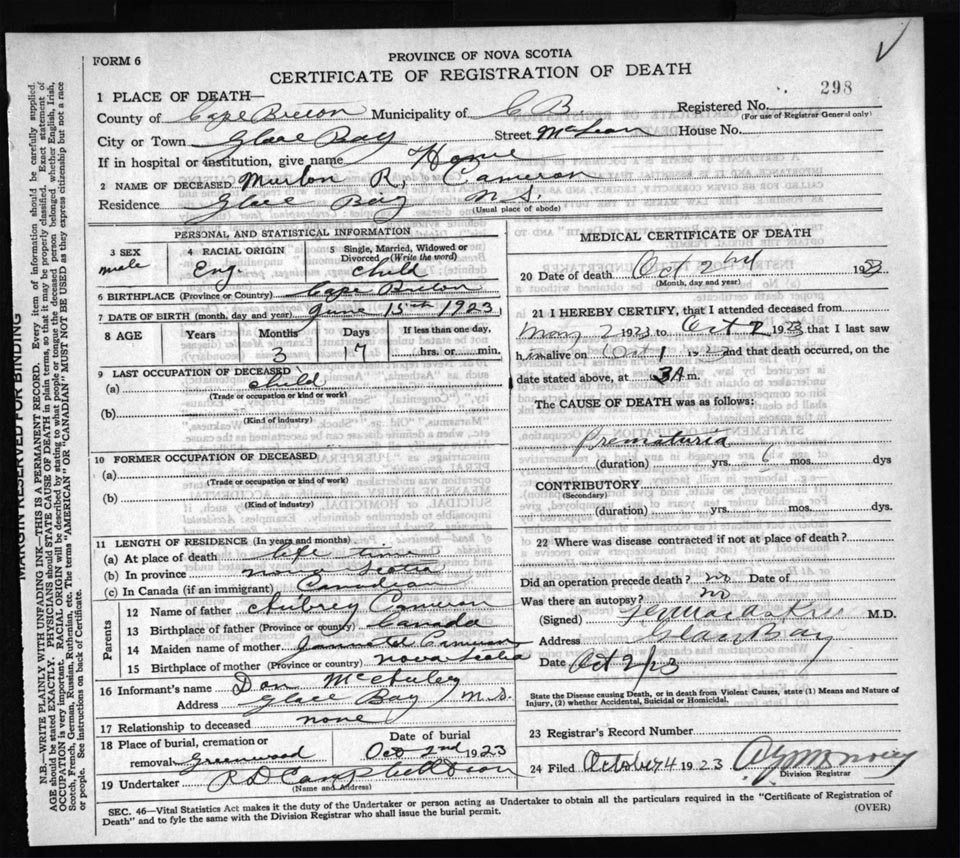 FORM 6
PROVINCE OF NOVA SCOTIA
CERTIFICATE OF REGISTRATION OF DEATH
298
1 PLACE OF DEATH—
Registered No.
(For use of Registrar General only)
County of Cape Breton Municipality of C B
City or Town Glace Bay Street McLean House No.
If in hospital or institution, give name Home
2 NAME OF DECEASED R. Cameron
Residence Glace Bay N S.
(Usual place of abode)
PERSONAL AND STATISTICAL INFORMATION
3 SEX male
4 RACIAL ORIGIN Eng.
5 Single, Married, Widowed or Divorced (Write the word) child
6 BIRTHPLACE (Province or Country) Cape Breton
7 DATE OF BIRTH (month, day and year) June 15th 1923
8 AGE Years Months Days If less than one day,
3 17 hrs. or min.
9 LAST OCCUPATION OF DECEASED
(a) child
(Trade or occupation or kind or work)
(b)
(Kind of industry)
10 FORMER OCCUPATION OF DECEASED
(a)
(Trade or occupation or kind of work)
(b)
(Kind of industry)
11 LENGTH OF RESIDENCE (In years and months)
(a) At place of death life time
(b) In province Nova Scotia
(c) In Canada (if an immigrant) Canadian
Parents
12 Name of father Aubrey Cameron
13 Birthplace of father (Province or country) Canada
14 Maiden name of mother
15 Birthplace of mother (Province or country) Nova Scotia
16 Informant's name Dan
Address Glace Bay N.S.
17 Relationship to deceased none
18 Place of burial, cremation or removal Greenwood
Date of burial Oct 2nd 1923
19 Undertaker
(Name and Address)
MEDICAL CERTIFICATE OF DEATH
20 Date of death Oct 2nd 1923
(Month, day and year)
21 I HEREBY CERTIFY, that I attended deceased from
1923 to Oct 2 1923 that I last saw
him alive on Oct 1 1923 and that death occurred, on the
date stated above, at 3A m.
The CAUSE OF DEATH was as follows:
Prematuria
(duration) yrs. mos. dys
CONTRIBUTORY
(Secondary)
(duration) yrs. mos. dys
22 Where was disease contracted if not at place of death?
Did an operation precede death? no Date of
Was there an autopsy? no
(Signed) M.D.
Address Glace Bay
Date Oct 2/23
State the Disease causing Death, or in death from Violent Causes, state (1) Means and Nature of
Injury, (2) whether Accidental, Suicidal or Homicidal.
23 Registrar's Record Number
24 Filed October 4 1923
Division Registrar
SEC. 46—Vital Statistics Act makes it the duty of the Undertaker or person acting as Undertaker to obtain all the particulars required in the "Certificate of Registration of
Death" and to fyle the same with the Division Registrar who shall issue the burial permit.
(OVER)
MARGIN RESERVED FOR BINDING
N.B.—WRITE PLAINLY WITH UNFADING INK—THIS IS A PERMANENT RECORD. Every item of information should be carefully supplied.
AGE should be stated EXACTLY. PHYSICIANS should STATE CAUSE OF DEATH in plain terms, so that it may be properly classified. Exact statement of
OCCUPATION is very important. RACIAL ORIGIN will be described by stating to what people or tongue the deceased person belonged whether English, Irish,
Scotch, French, German, Russian, Ruthenian, etc. The terms "AMERICAN" OR "CANADIAN" MUST NOT BE USED as they express citizenship but not a race
or people. See instructions on back of Certificate.